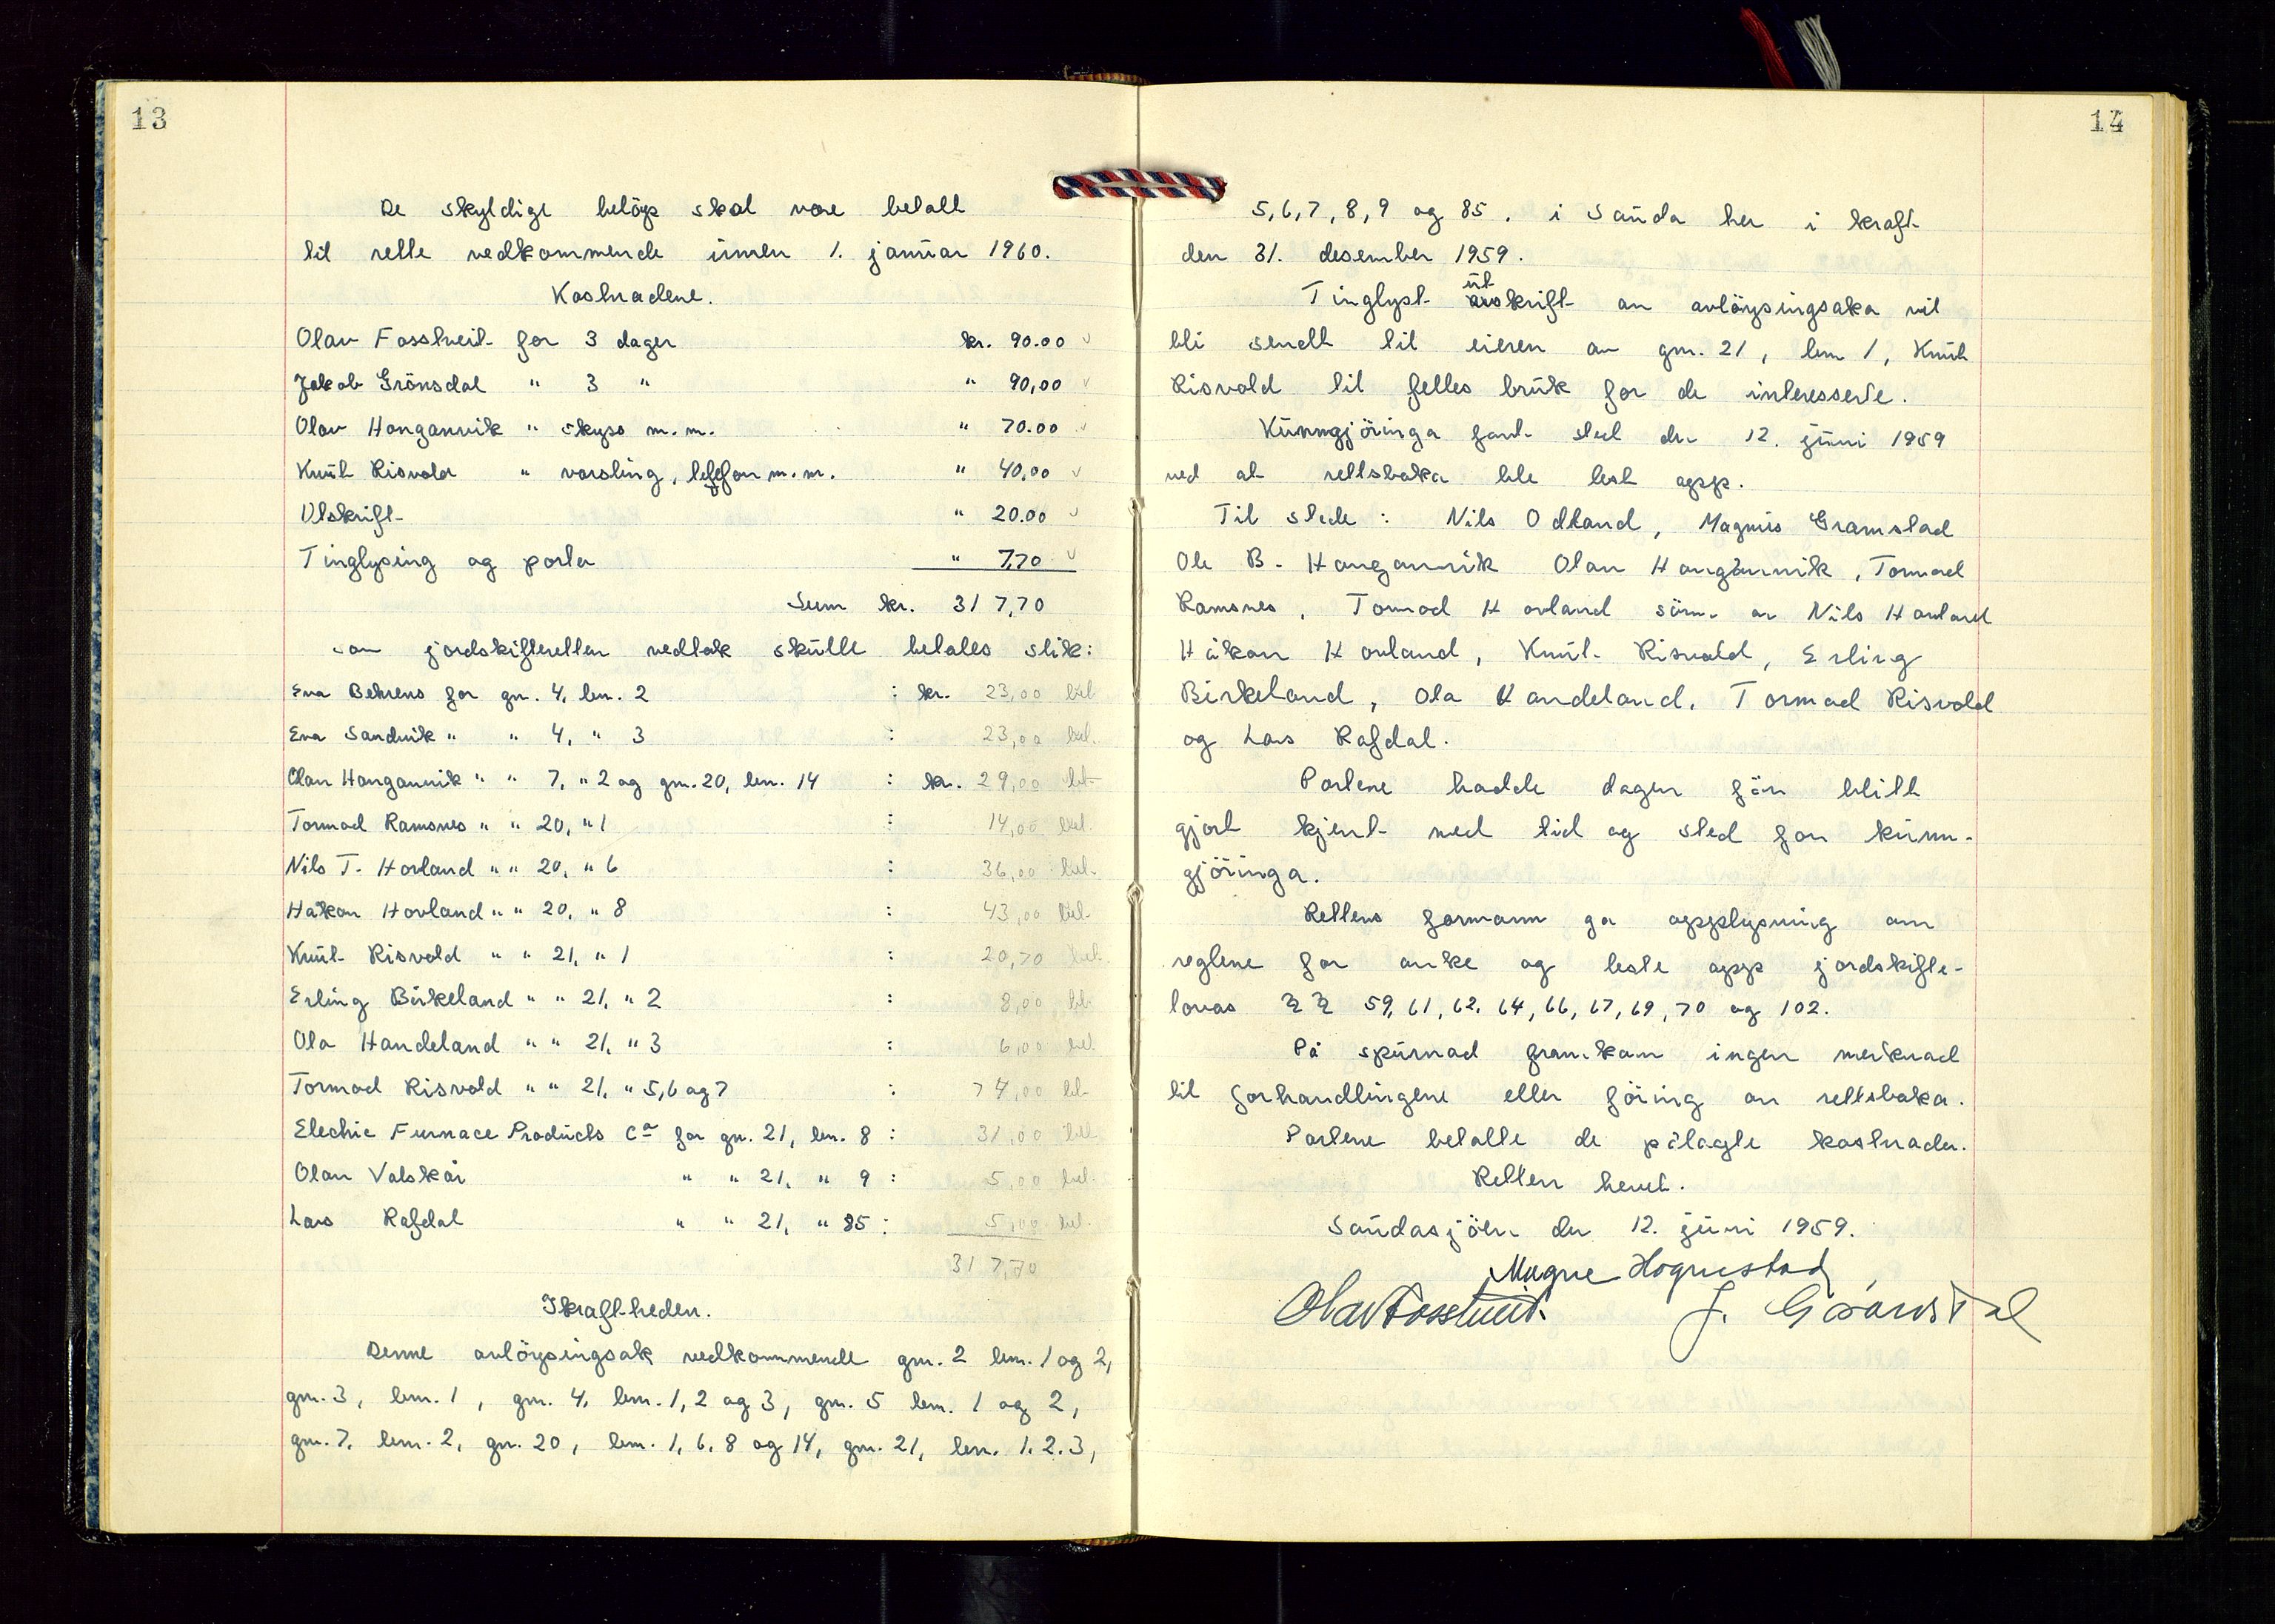 13
De skyldige beløp skal være betalt
til rette vedkommende innen 1. januar 1960.
Kostnadene.
Olav Fosstveit for 3 dager kr. 90.00
Jakob Grönsdal " 3 " " 90,00
Olav Honganvik " skyss m.m. " 70.00
Knut Risvold " varsling, telefon m.m. " 40,00
Utskrift " 20.00
Tinglysing og porto " 7,70
Sum kr. 317,70
som jordskifteretten vedtok skulle betales slik:
Eva Behrens for gn. 4, bnr. 2 : kr. 23,00 bet
Eva Sandvik " " 4, " 3 : 23,00 bet.
Olav Honganvik " " 7, " 2 og gnr. 20, bnr. 14 : kr. 29,00 bet
Tormod Ramsnes " " 20, " 1 : 14,00 bet.
Nils T. Hovland " " 20, " 6 : 36,00 bet.
Håkon Hovland " " 20, " 8 : 43,00 bet.
Knut Risvold " " 21, " 1 : 20,70 bet.
Erling Birkeland " " 21, " 2 : 8,00 bet.
Ola Handeland " " 21, " 3 : 6,00 bet.
Tormod Risvold " " 21, " 5,6 og 7 : 74,00 bet
Electric Furnace Products Co for gn. 21, bnr. 8 : 31,00 bet
Olav Valskår " " 21, " 9 : 5,00 bet.
Lars Rafdal " " 21, " 85 : 5,00 bet.
317,70
Ikraft-treden.
Denne avlöysingsak vedkommende gnr. 2 bnr. 1 og 2,
gnr. 3, bnr. 1, gnr. 4, bnr. 1, 2 og 3, gnr. 5 bnr. 1 og 2,
gnr. 7, bnr. 2, gn. 20, bnr. 1, 6, 8 og 14, gnr. 21, bnr. 1. 2. 3,
14
5, 6, 7, 8, 9 og 85, i Sauda trer i kraft
den 31. desember 1959.
Tinglyst utskrift av avlöysingsaka vil
bli sendt til eieren av gnr. 21, bnr 1, Knut
Risvold til felles bruk for de interesserte.
Kunngjöringa fant sted den 12. juni 1959
ved at rettsboka ble lest opp.
Til stede : Nils Odland, Magnus Gramstad
Ole B. Honganvik Olav Honganvik, Tormod
Ramsnes, Tormod Hovland sönn av Nils Hovland
Håkon Hovland, Knut Risvold, Erling
Birkeland, Ola Handeland, Tormod Risvold
og Lars Rafdal.
Partene hadde dagen för blitt
gjort kjent med tid og sted for kunn-
gjöringa.
Rettens formann ga opplysning om
reglene for anke og leste opp jordskifte-
lovas §§ 59, 61, 62, 64, 66, 67, 69, 70 og 102.
På spurnad framkom ingen merknad
til forhandlingene eller föring av rettsboka.
Partene betalte de pålagte kostnader.
Retten hevet.
Saudasjöen den 12. juni 1959.
Magne Hognestad
Olav Fosstveit. J. Grönsdal